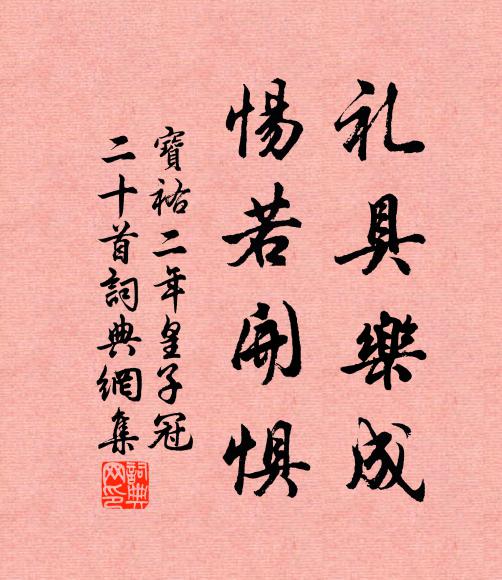 礼具樂成
惕若開惧
寶祐二年皇子冠
二十首詞典網集
詞典网印